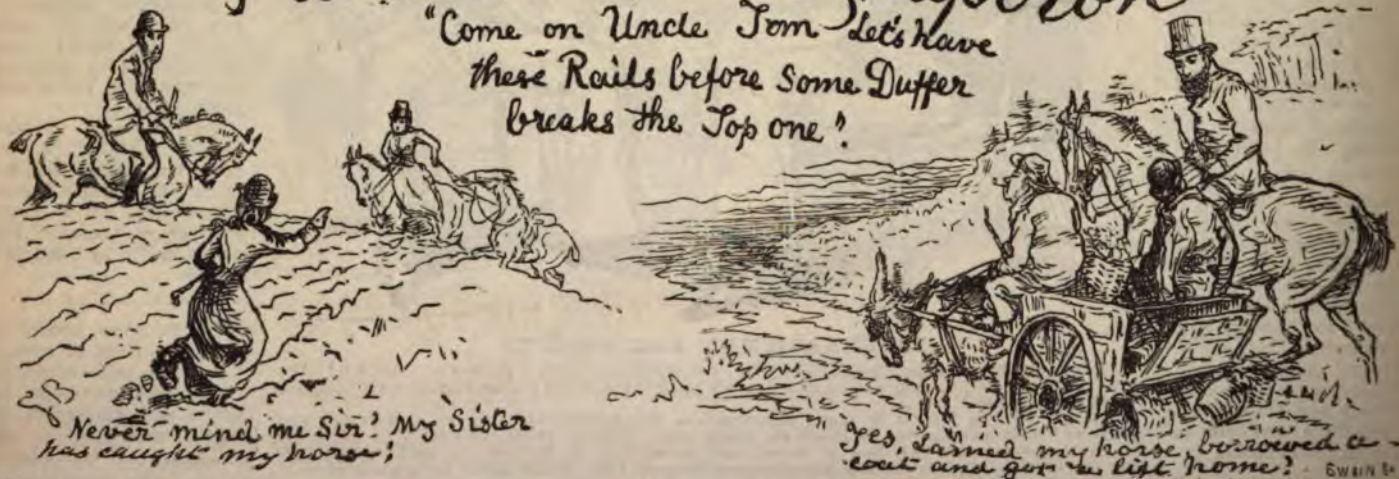 "Come on Uncle Tom - Let's have
these Rails before some Duffer
breaks the Top one!
Never mind me Sir! My Sister
has caught my horse!
Yes, Lamed my horse, borrowed a
coat and got a lift home!
SWAIN